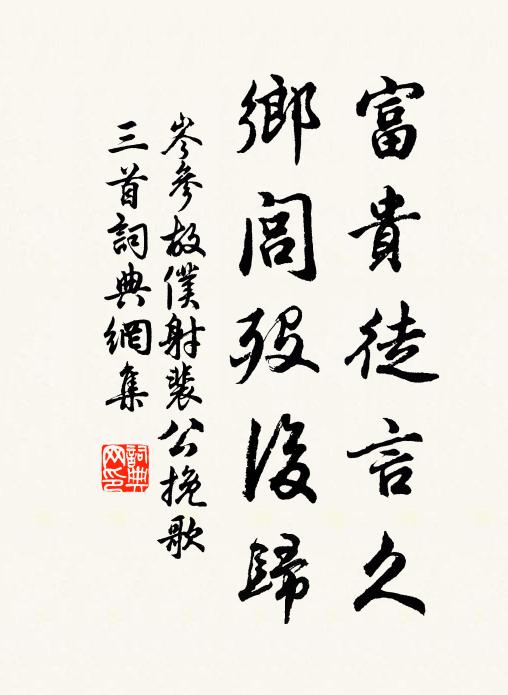 富貴徒言久
鄉閭歿後歸
岑參故僕射裴公挽歌
三首詞典網集
詞典網印